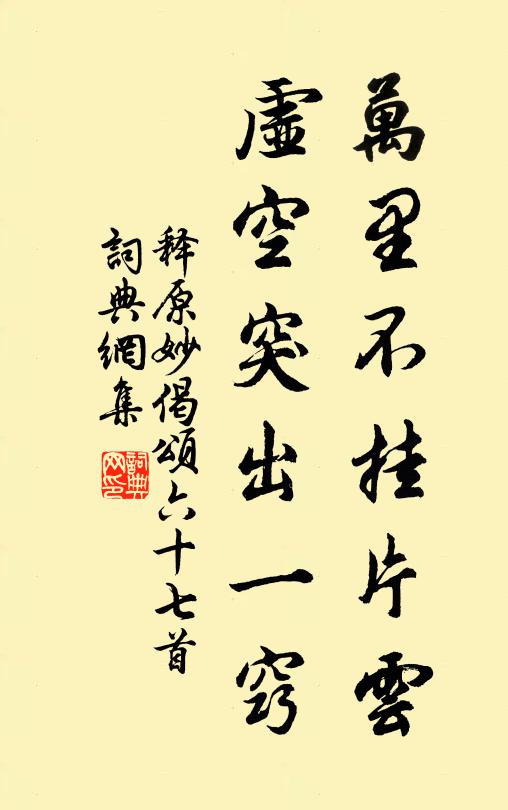 萬里不挂片雲
虛空突出一竅
释原妙偈頌六十七首
詞典網集
詞典网印